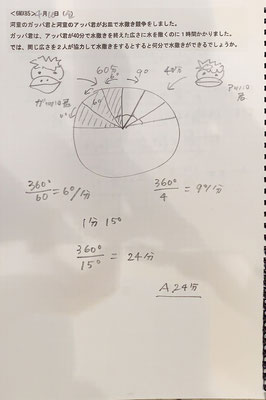 河童のガッパ君と河童のアッパ君がお皿で水撒き競争をしました。
ガッパ君は、アッパ君が40分で水撒きを終えた広さに水を撒くのに1時間かかりました。
では、同じ広さを2人が協力して水撒きをするとすると何分で水撒きができるでしょうか。
60分 9° 40分
6°
ガッパ君
アッパ君
360°/60 = 6°/分
360°/4 = 9°/分
1分 15°
360°/15° = 24分
A, 24分